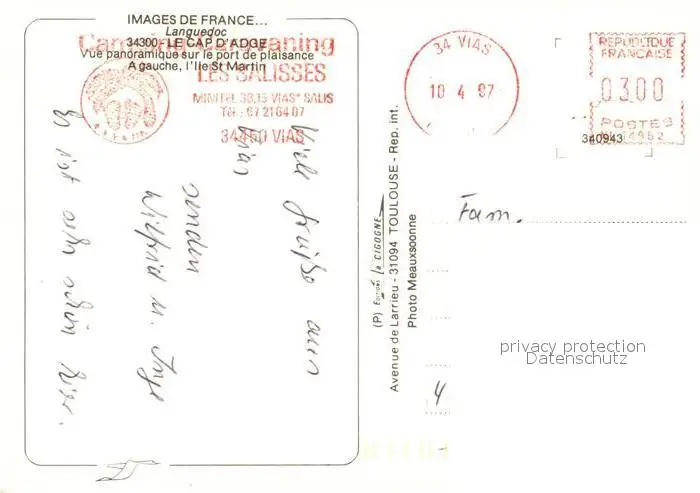 IMAGES DE FRANCE...
Languedoc
34300 - LE CAP D'AGDE
Vue panoramique sur le port de plaisance
A gauche, l'Ile St Martin
Camping Caravaning
LES SALISSES
MINITEL 36.15 VIAS* SALIS
Tél : 67 21 64 07
34450 VIAS
Viele Grüße aus
Vias
senden
Wilfried u. Inge
Es ist sehr schön hier.
(P) Editions la CIGOGNE
Avenue de Larrieu - 31094 TOULOUSE - Rep. int.
Photo Meauxsoonne
34 VIAS
10 4 87
REPUBLIQUE
FRANCAISE
03.00
POSTES
340943
Fam.
privacy protection
Datenschutz
4